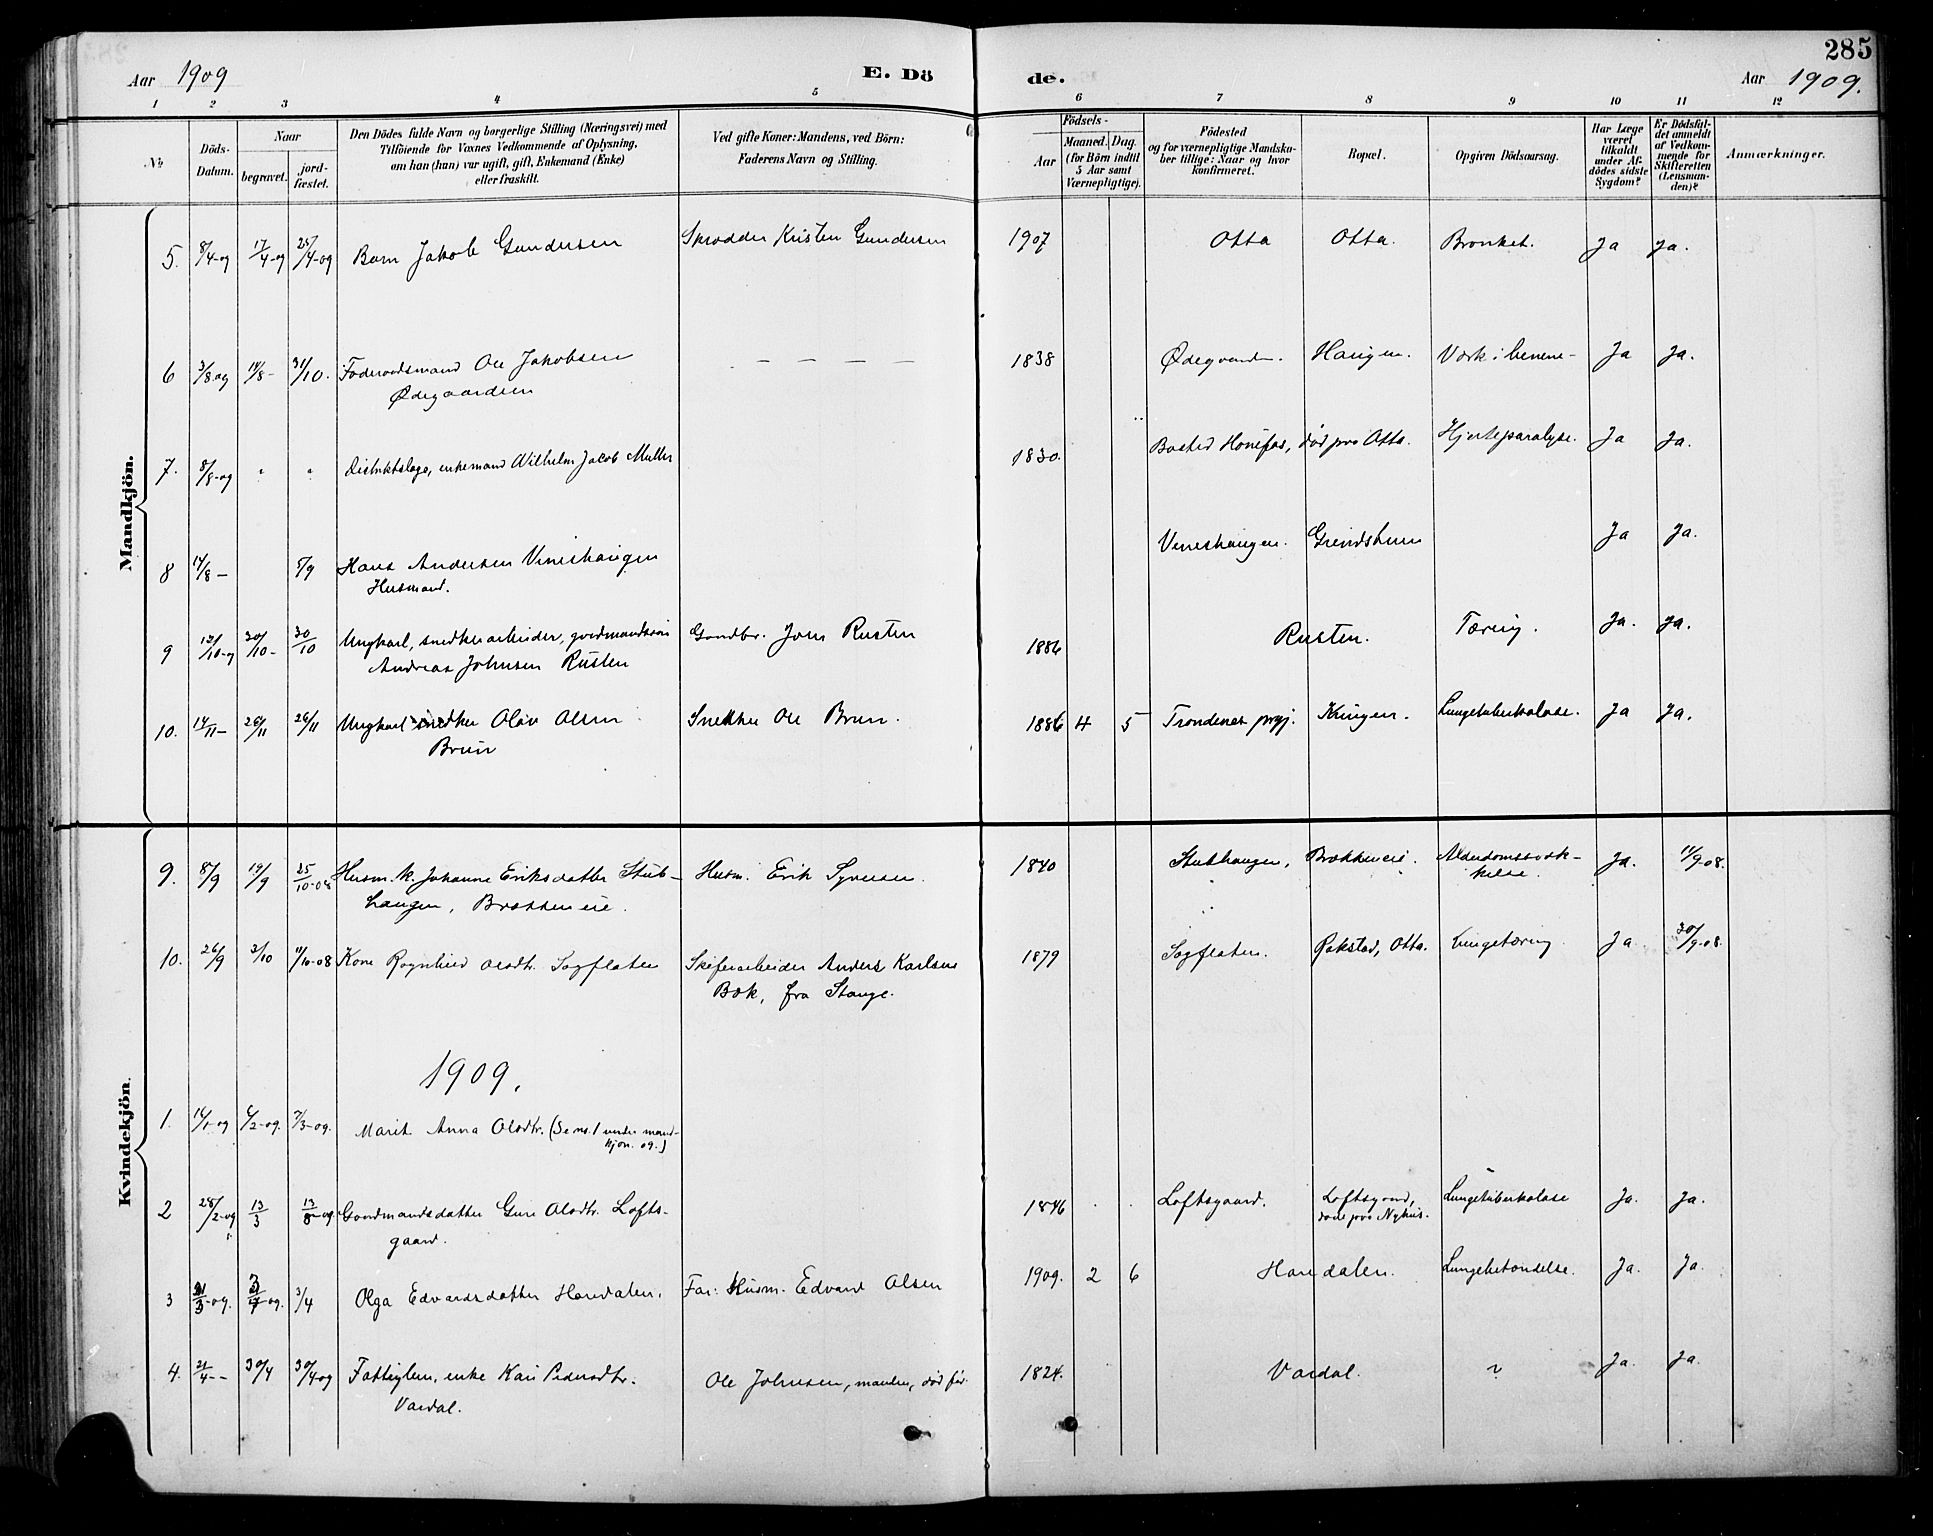 285
Aar 1909 E. Dö de. Aar 1909.
1 2 3 4 5 6 7 8 9 10 11 12
No
Döds-Datum.
Naar
begravet.
jordfæstet.
Den Dödes fulde Navn og borgerlige Stilling (Næringsvei) med
Tilföiende for Voxnes Vedkommende af Oplysning,
om han (hun) var ugift, gift, Enkemand (Enke)
eller fraskilt.
Ved gifte Koner: Mandens, ved Börn:
Faderens Navn og Stilling.
Födsels-
Aar
Maaned. Dag.
(for Börn indtil
5 Aar samt
Værnepligtige).
Födested
og for værnepligtige Mandskaber tillige: Naar og hvor
konfirmeret.
Bopæl.
Opgiven Dödsaarsag.
Har Læge
været
tilkaldt
under Afdödes sidste
Sygdom?
Er Dödsfaldet anmeldt
af Vedkommende for
Skifteretten
(Lensmanden)?
Anmærkninger.
Mandkjön.
5. 8/4-09 17/4-09 25/4-09 Barn Jakob Gundersen Skrædder Kristen Gundersen 1907 Otta Otta. Bronket. Ja Ja.
6 3/8-09 14/8- 31/10. Føderaadsmand Ole Jakobsen — — — — 1838 Ødegaarden. Haugen. Værk i benene- Ja Ja.
Ødegaarden
7. 8/8-09 " " Distriktslæge, enkemand Wilhelm Jacob Müller 1830. Bosted Hønefos, død paa Otta. Hjerteparalyse. Ja Ja.
8 14/8- 5/9 Hans Andersen Vineshaugen Vineshaugen. Grindstuen Ja Ja.
Husmand.
9 12/10-09 20/10- 30/10 Ungkarl, snedkerarbeider, gaardmandssøn Gaardbr. Jom Rusten 1886 Rusten. Tæring. Ja. Ja.
Andreas Johnsen Rusten
10. 14/11- 26/11 26/11 Ungkarl snedker Olav Olsen Snekker Ole Brun. 1886 4 5 Trondenes prgj. Kringen. Lungetuberkulose. Ja Ja.
Brun
Kvindekjön.
9. 8/9 19/9 25/10-08 Husm. k. Johanne Eriksdatter Stub- Husm. Erik Syversen. 1840 Stubhaugen, Brækkeneie. Alderdomssvæk- Ja. 11/9 08.
haugen, Brækkeneie. kelse.
10. 26/9 3/10 11/10-08 Kone Rognhild Olsdtr. Sagflaten Skiferarbeider Anders Karlsen 1879 Sagflaten. Rokstad, Otta. Lungetæring. Ja 30/9-08.
Bæk, fra Stange.
1909.
1. 14/1-09 6/2-09. 7/3-09. Marit Anna Olsdtr. (Se no. 1 under mand-
kjøn. 09.)
2 28/2-09 13/3 13/3-09 Gaardmandsdatter Guri Olsdtr. Lofts- 1846 . . Loftsgaard. Loftsgaard, Lungetuberkulose Ja. Ja.
gaard. døde paa Nyhus.
3 21/3-09. 3/4-09. 3/4 Olga Edvardsdatter Horedalen. Far: Husm. Edvard Olsen 1909. 2 6 Horedalen. Lungebetændelse. Ja. Ja.
4. 21/4-- 30/4 30/4-09 Fattiglem, enke Kari Pedersdtr. Ole Johnsen, manden, død før. 1824. Vardal. ? Ja. Ja.
Vardal.